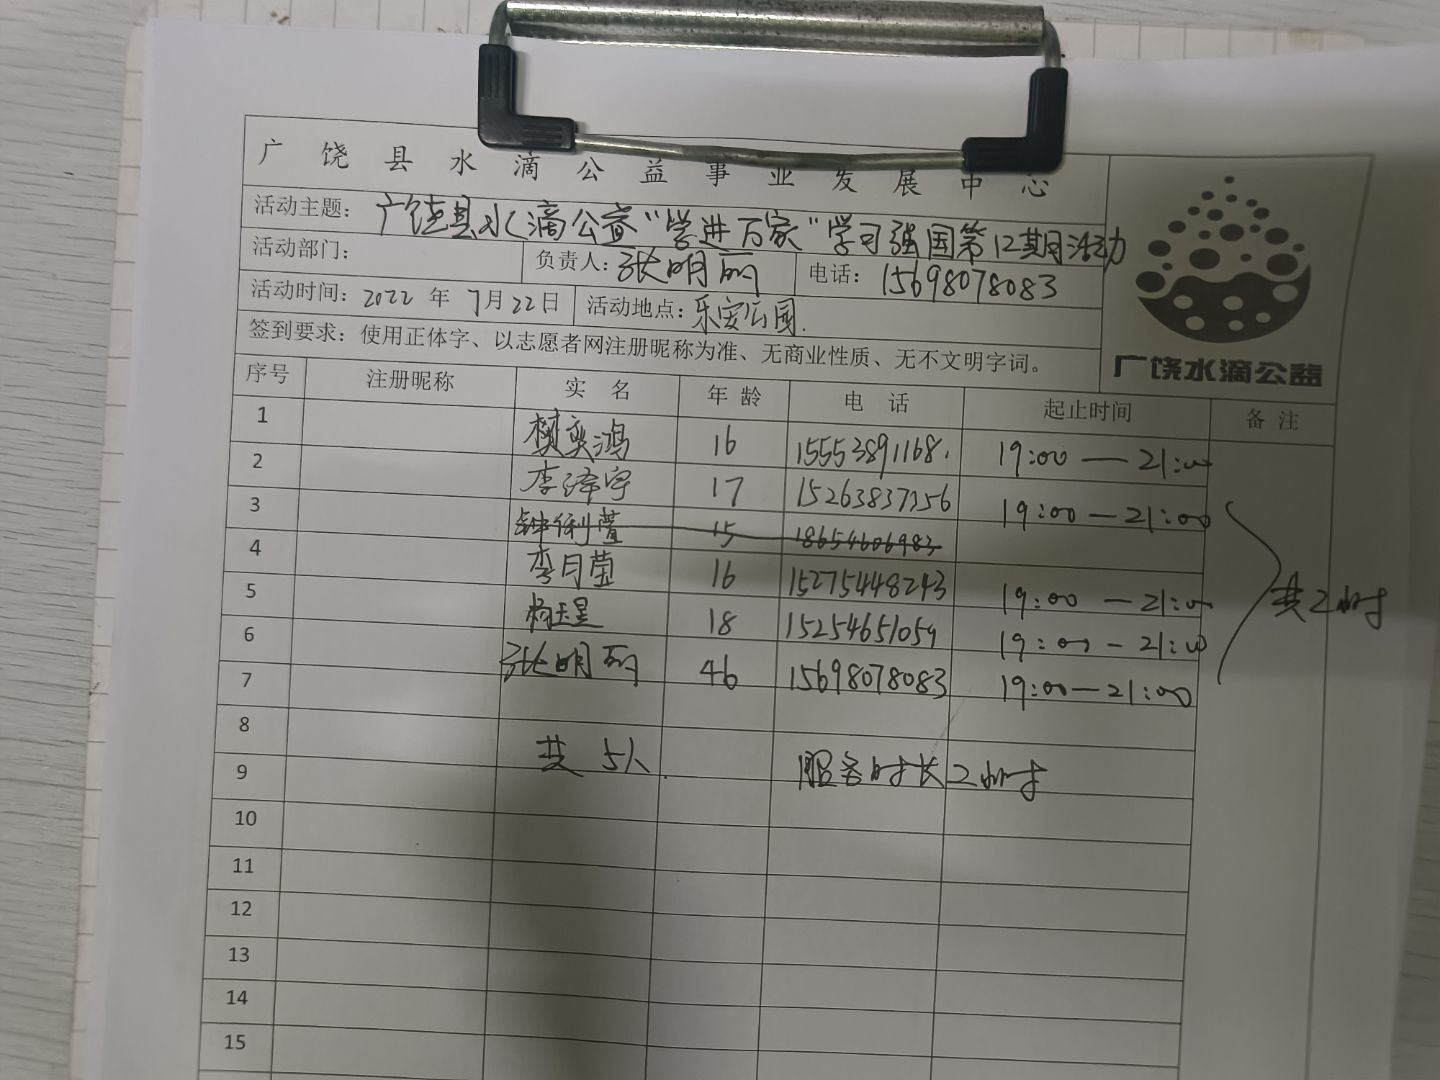 广饶县水滴公益事业发展中心
活动主题：广饶县水滴公益“学进万家”学习强国第12期活动
活动部门： 负责人：张明丽 电话：15698078083
活动时间：2022年7月22日 活动地点：乐安公园.
签到要求：使用正体字、以志愿者网注册昵称为准、无商业性质、无不文明字词。
广饶水滴公益
序号 注册昵称 实名 年龄 电话 起止时间 备注
1 奕鸿 16 15553891168. 19:00—21:00
2 李泽宇 17 15263837356 19:00—21:00
3 钟俐萱 15 18654606983
4 李月莹 16 15275448243 19:00—21:00
5 杨玉昱 18 15254651059 19:00-21:00
6 张明丽 46 15698078083 19:00—21:00
共2小时
7
8 共5人. 服务时长2小时
9
10
11
12
13
14
15